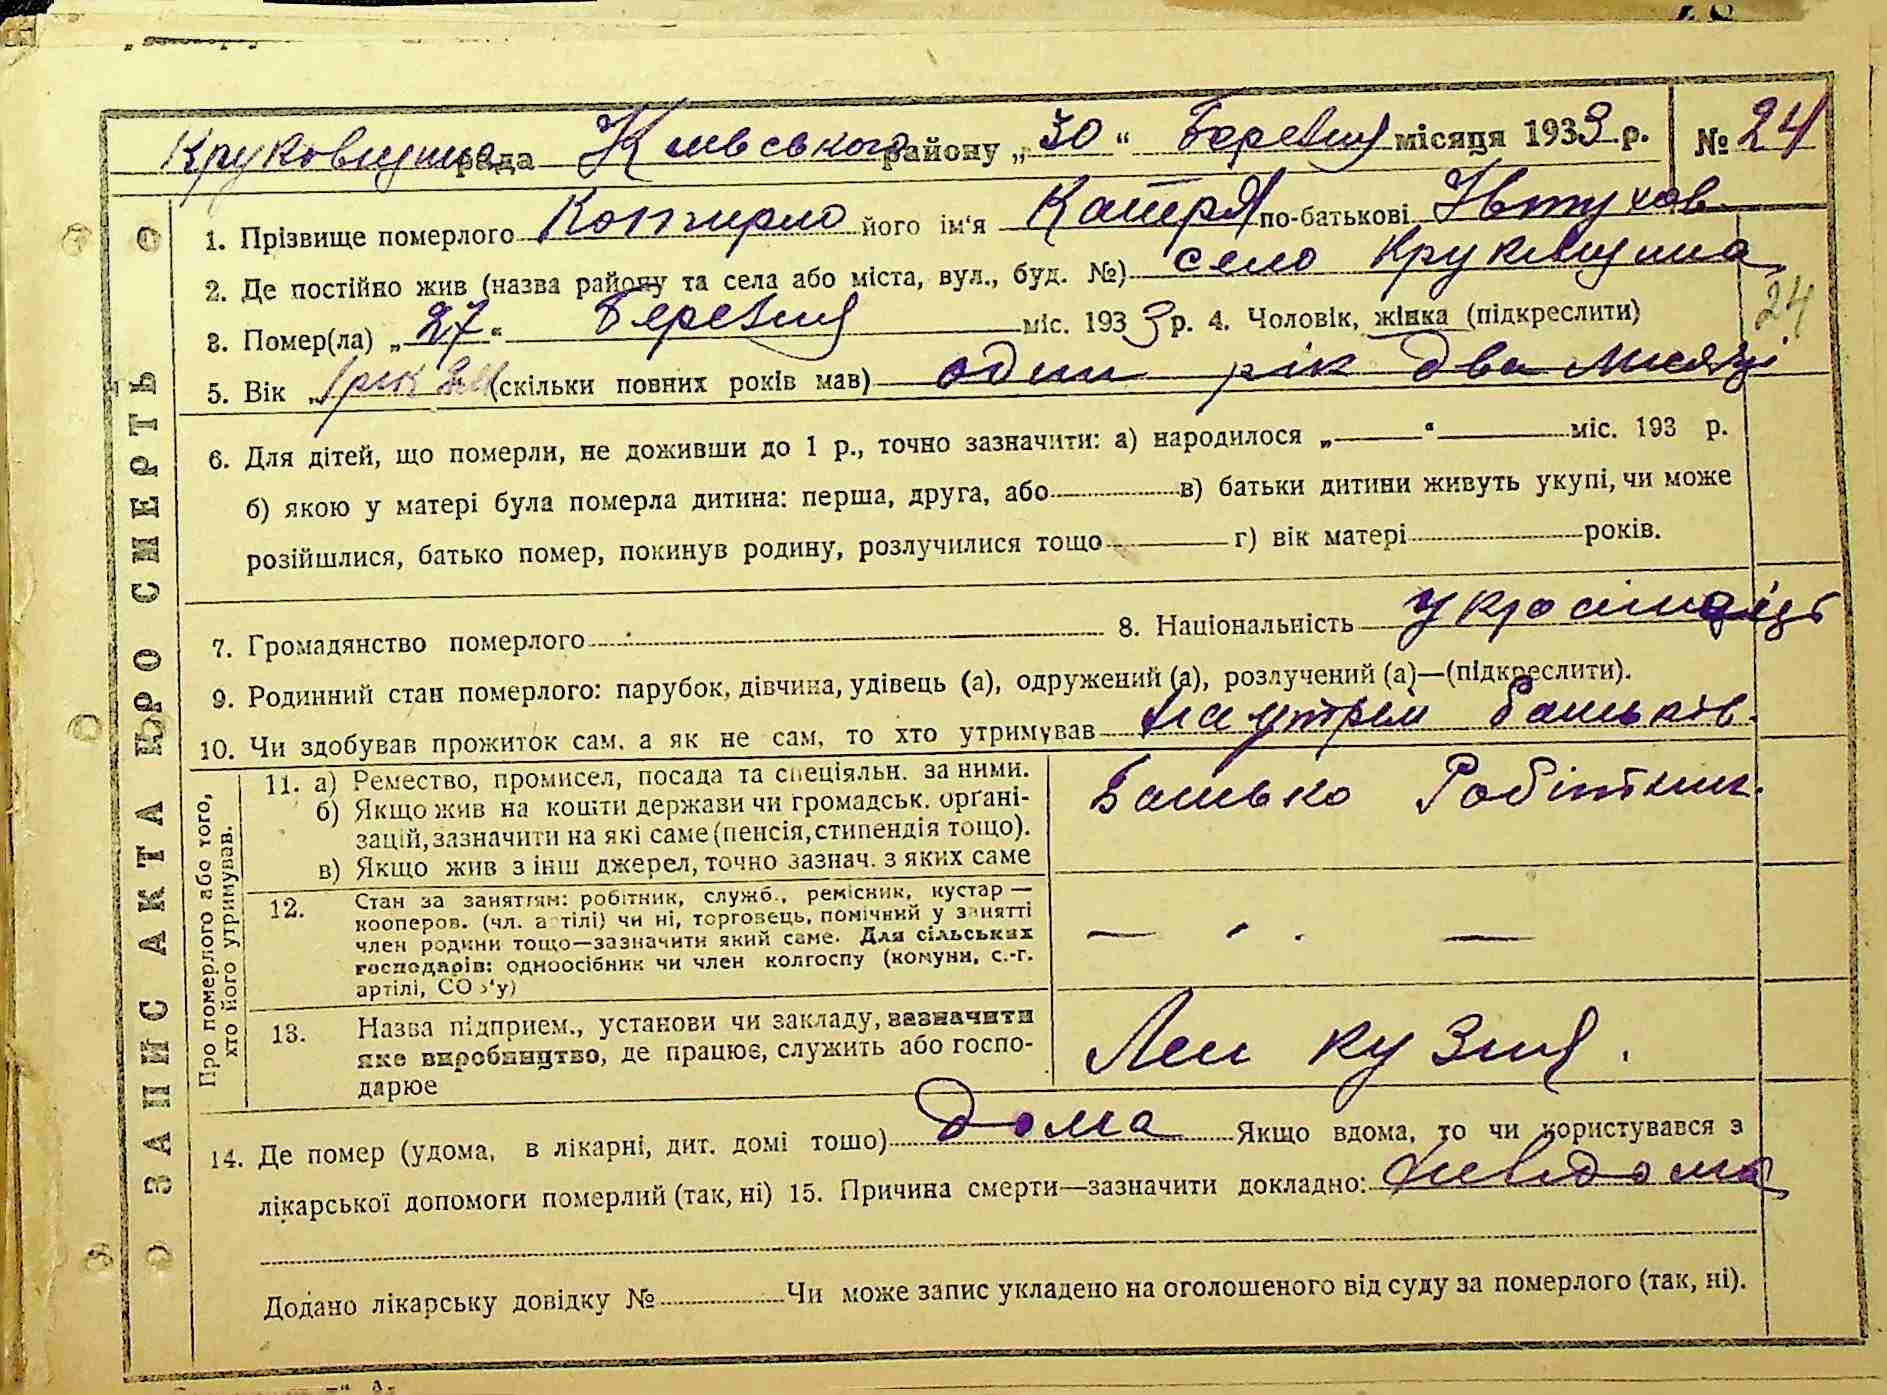 Круковщинс рада Київського району „30“ Березня місяця 1933 р. № 24
ЗАПИС АКТА ПРО СМЕРТЬ
1. Прізвище померлого його ім'я Катря по-батькові Івтухов
2. Де постійно жив (назва району та села або міста, вул., буд. №) село Круківщина
3. Помер(ла) „27“ Березня міс. 1933 р. 4. Чоловік, жінка (підкреслити)
24
5. Вік „1 рік 2 м (скільки повних років мав) один рік два місяці
6. Для дітей, що померли, не доживши до 1 р., точно зазначити: а) народилося „ “ міс. 193 р.
б) якою у матері була померла дитина: перша, друга, або в) батьки дитини живуть укупі, чи може
розійшлися, батько помер, покинув родину, розлучилися тощо г) вік матері років.
7. Громадянство померлого 8. Національність українець
9. Родинний стан померлого: парубок, дівчина, удівець (а), одружений (а), розлучений (а)—(підкреслити).
10. Чи здобував прожиток сам, а як не сам, то хто утримував на утрим батьків.
Про померлого або того, хто його утримував.
11. а) Ремество, промисел, посада та спеціяльн. за ними. Батько Робітник.
б) Якщо жив на кошти держави чи громадськ. орґані-
зацій, зазначити на які саме (пенсія, стипендія тощо).
в) Якщо жив з інш джерел, точно зазнач. з яких саме
12. Стан за заняттям: робітник, служб., ремісник, кустар —
кооперов. (чл. а тілі) чи ні, торговець, помічний у занятті
член родини тощо—зазначити який саме. Для сільських
господарів: одноосібник чи член колгоспу (комуни, с.-г.
артілі, СО з'у)
13. Назва підприєм., установи чи закладу, зазначити
яке виробництво, де працює, служить або госпо- Лен кузня.
дарює
14. Де помер (удома, в лікарні, дит. домі тощо) дома Якщо вдома, то чи користувався з
лікарської допомоги померлий (так, ні) 15. Причина смерти—зазначити докладно: невідома
Додано лікарську довідку № Чи може запис укладено на оголошеного від суду за померлого (так, ні).